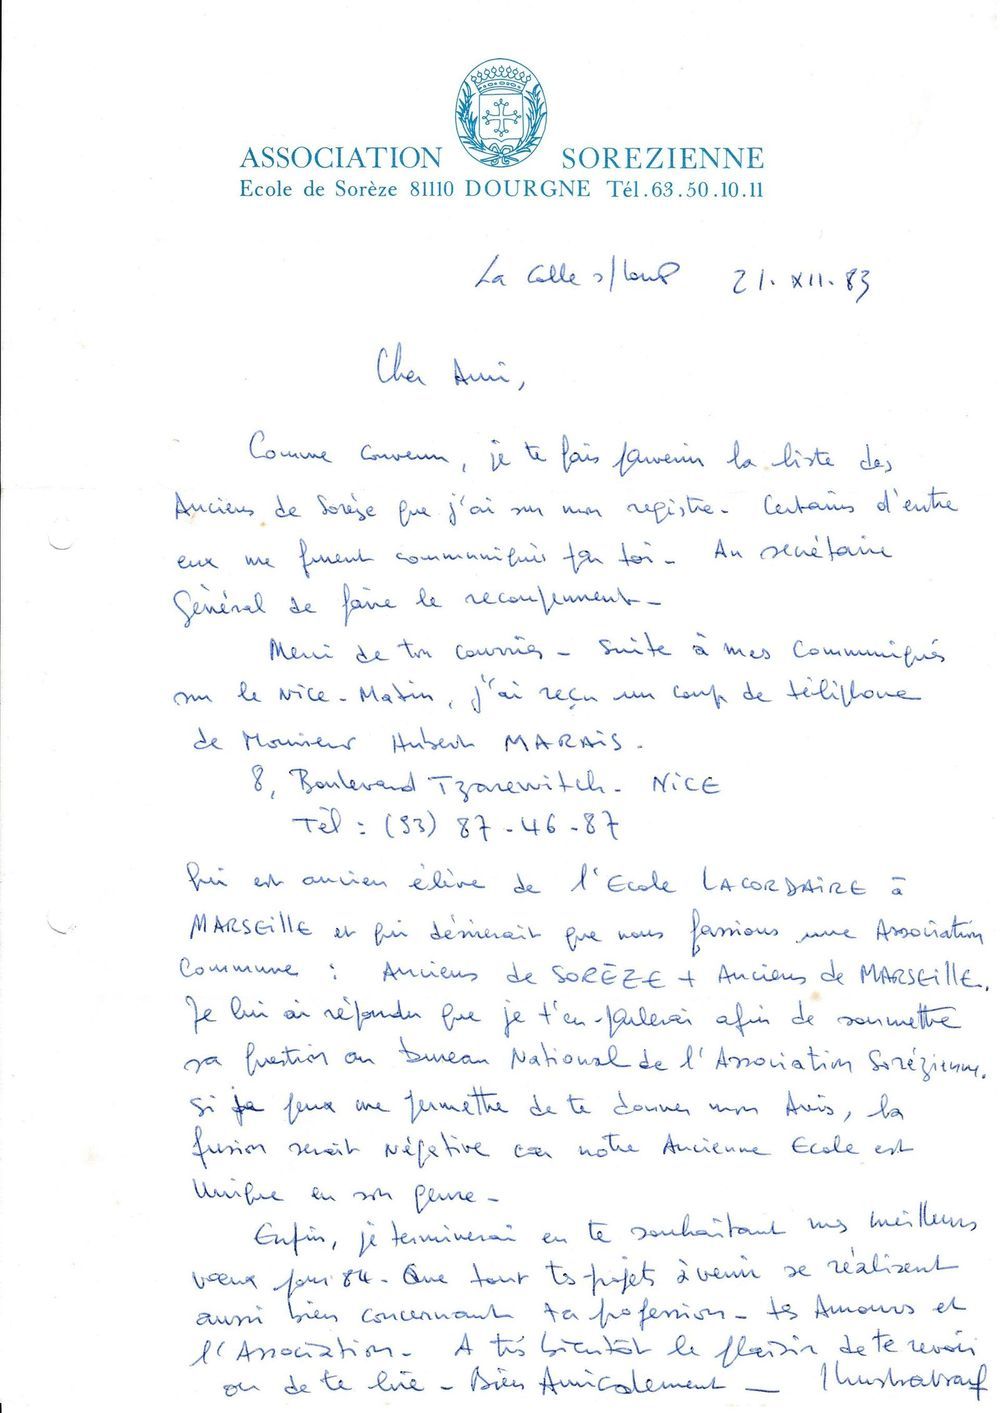 ASSOCIATION SOREZIENNE
Ecole de Sorèze 81110 DOURGNE Tél.63.50.10.11
La Colle s/Loup 21.XII.83
Cher Ami,
Comme convenu, je te fais parvenir la liste des
Anciens de Sorèze que j'ai sur mon registre. Certains d'entre
eux me furent communiqués par toi. Au secrétaire
Général de faire le recoupement.
Merci de ton courrier. Suite à mes communiqués
sur le Nice-Matin, j'ai reçu un coup de téléphone
de Monsieur Hubert MARAIS.
8, Boulevard Tzarewitch. NICE
Tél : (93) 87-46-87
Qui est ancien élève de l'Ecole LACORDAIRE à
MARSEILLE et qui désirerait que nous fassions une Association
Commune : Anciens de SORÈZE + Anciens de MARSEILLE.
Je lui ai répondu que je t'en parlerai afin de soumettre
sa question au bureau National de l'Association Sorézienne.
Si je peux me permettre de te donner mon Avis, la
fusion serait Négative car notre Ancienne Ecole est
Unique en son genre.
Enfin, je terminerai en te souhaitant mes meilleurs
voeux pour 84. Que tout tes projets à venir se réalisent
aussi bien concernant ta profession - tes Amours et
l'Association. A très bientôt le plaisir de te revoir
ou de te lire - Bien Amicalement